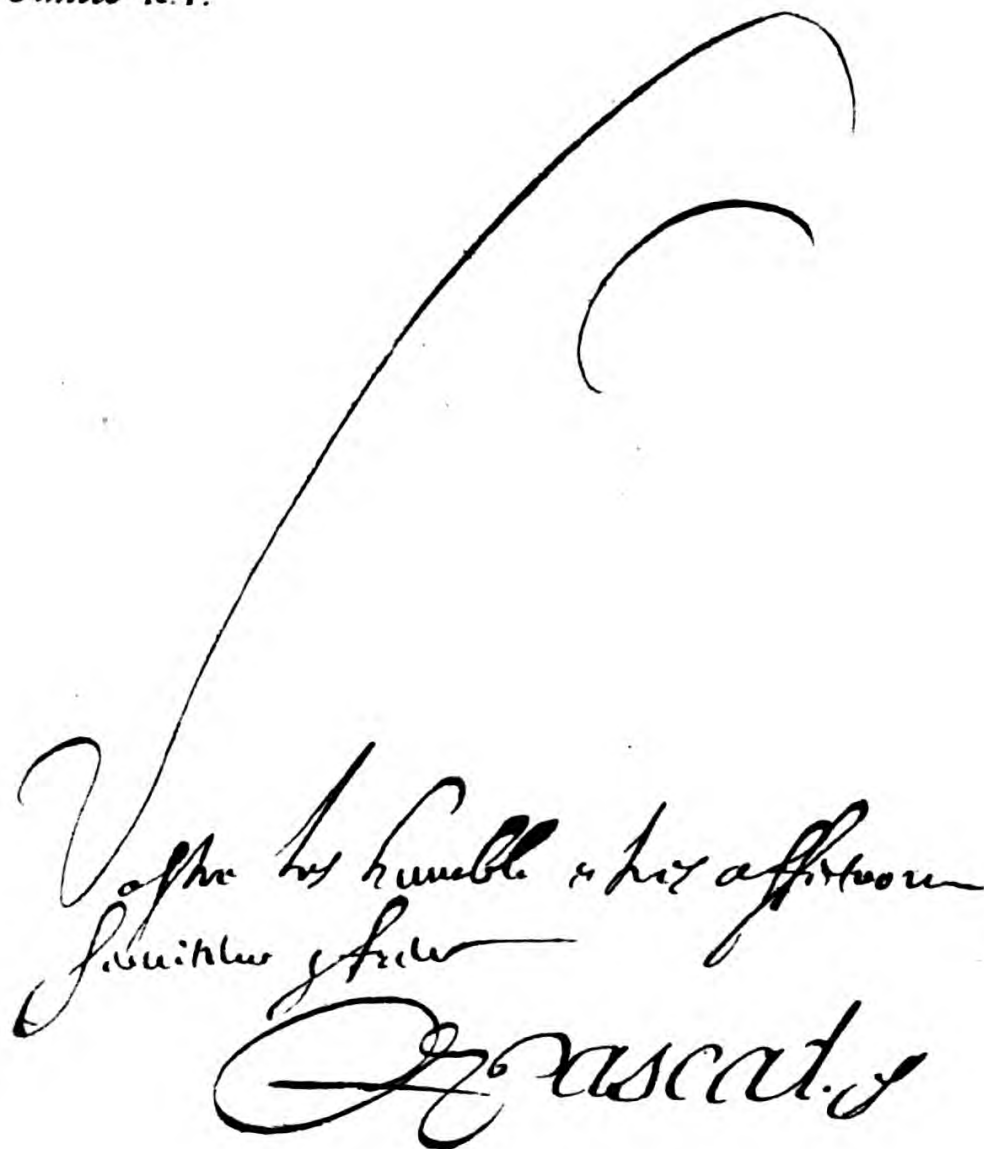 Vostre tres humble et tres affectionn
serviteur & frere
Pascal.